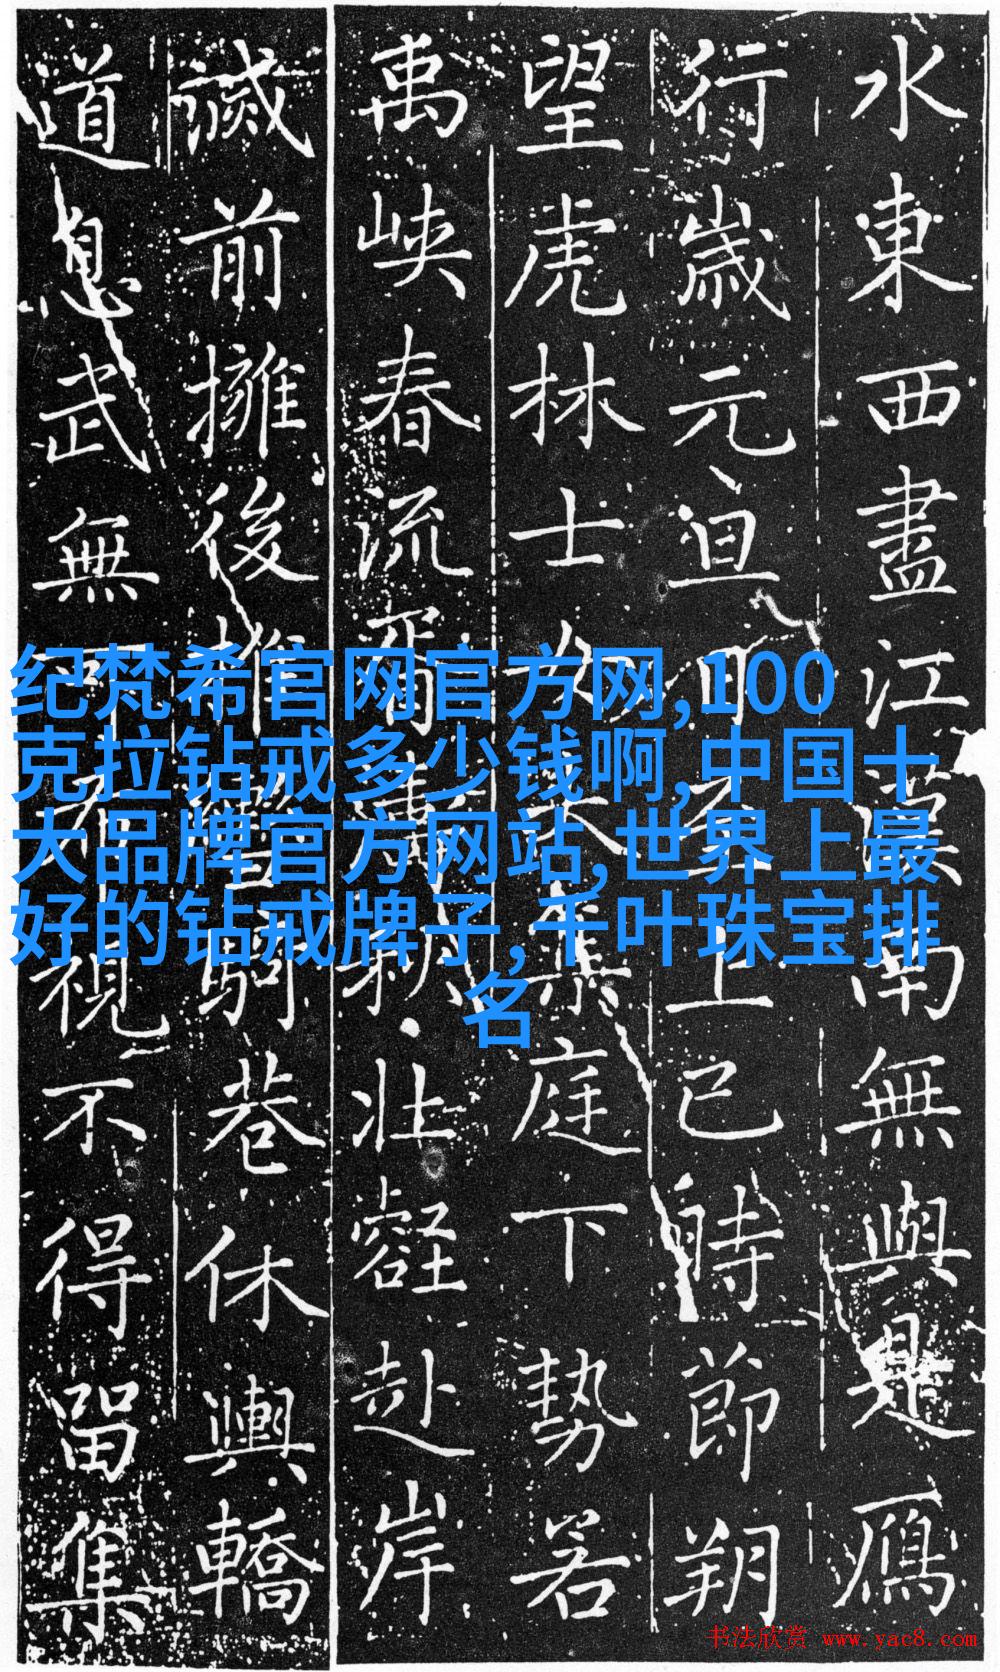 水東西盡江南無與是鴈
行歲元旦上巳時節朔
望虎林士女大集庭下勢若
禹峽春流壯壑赴岸
滅前擁後巷休輿轎
道息武無視不得留集
纪梵希官网官方网,100
克拉钻戒多少钱啊,中国十
大品牌官方网站,世界上最
好的钻戒牌子,千叶珠宝排
名
书法欣赏 www.yac8.com